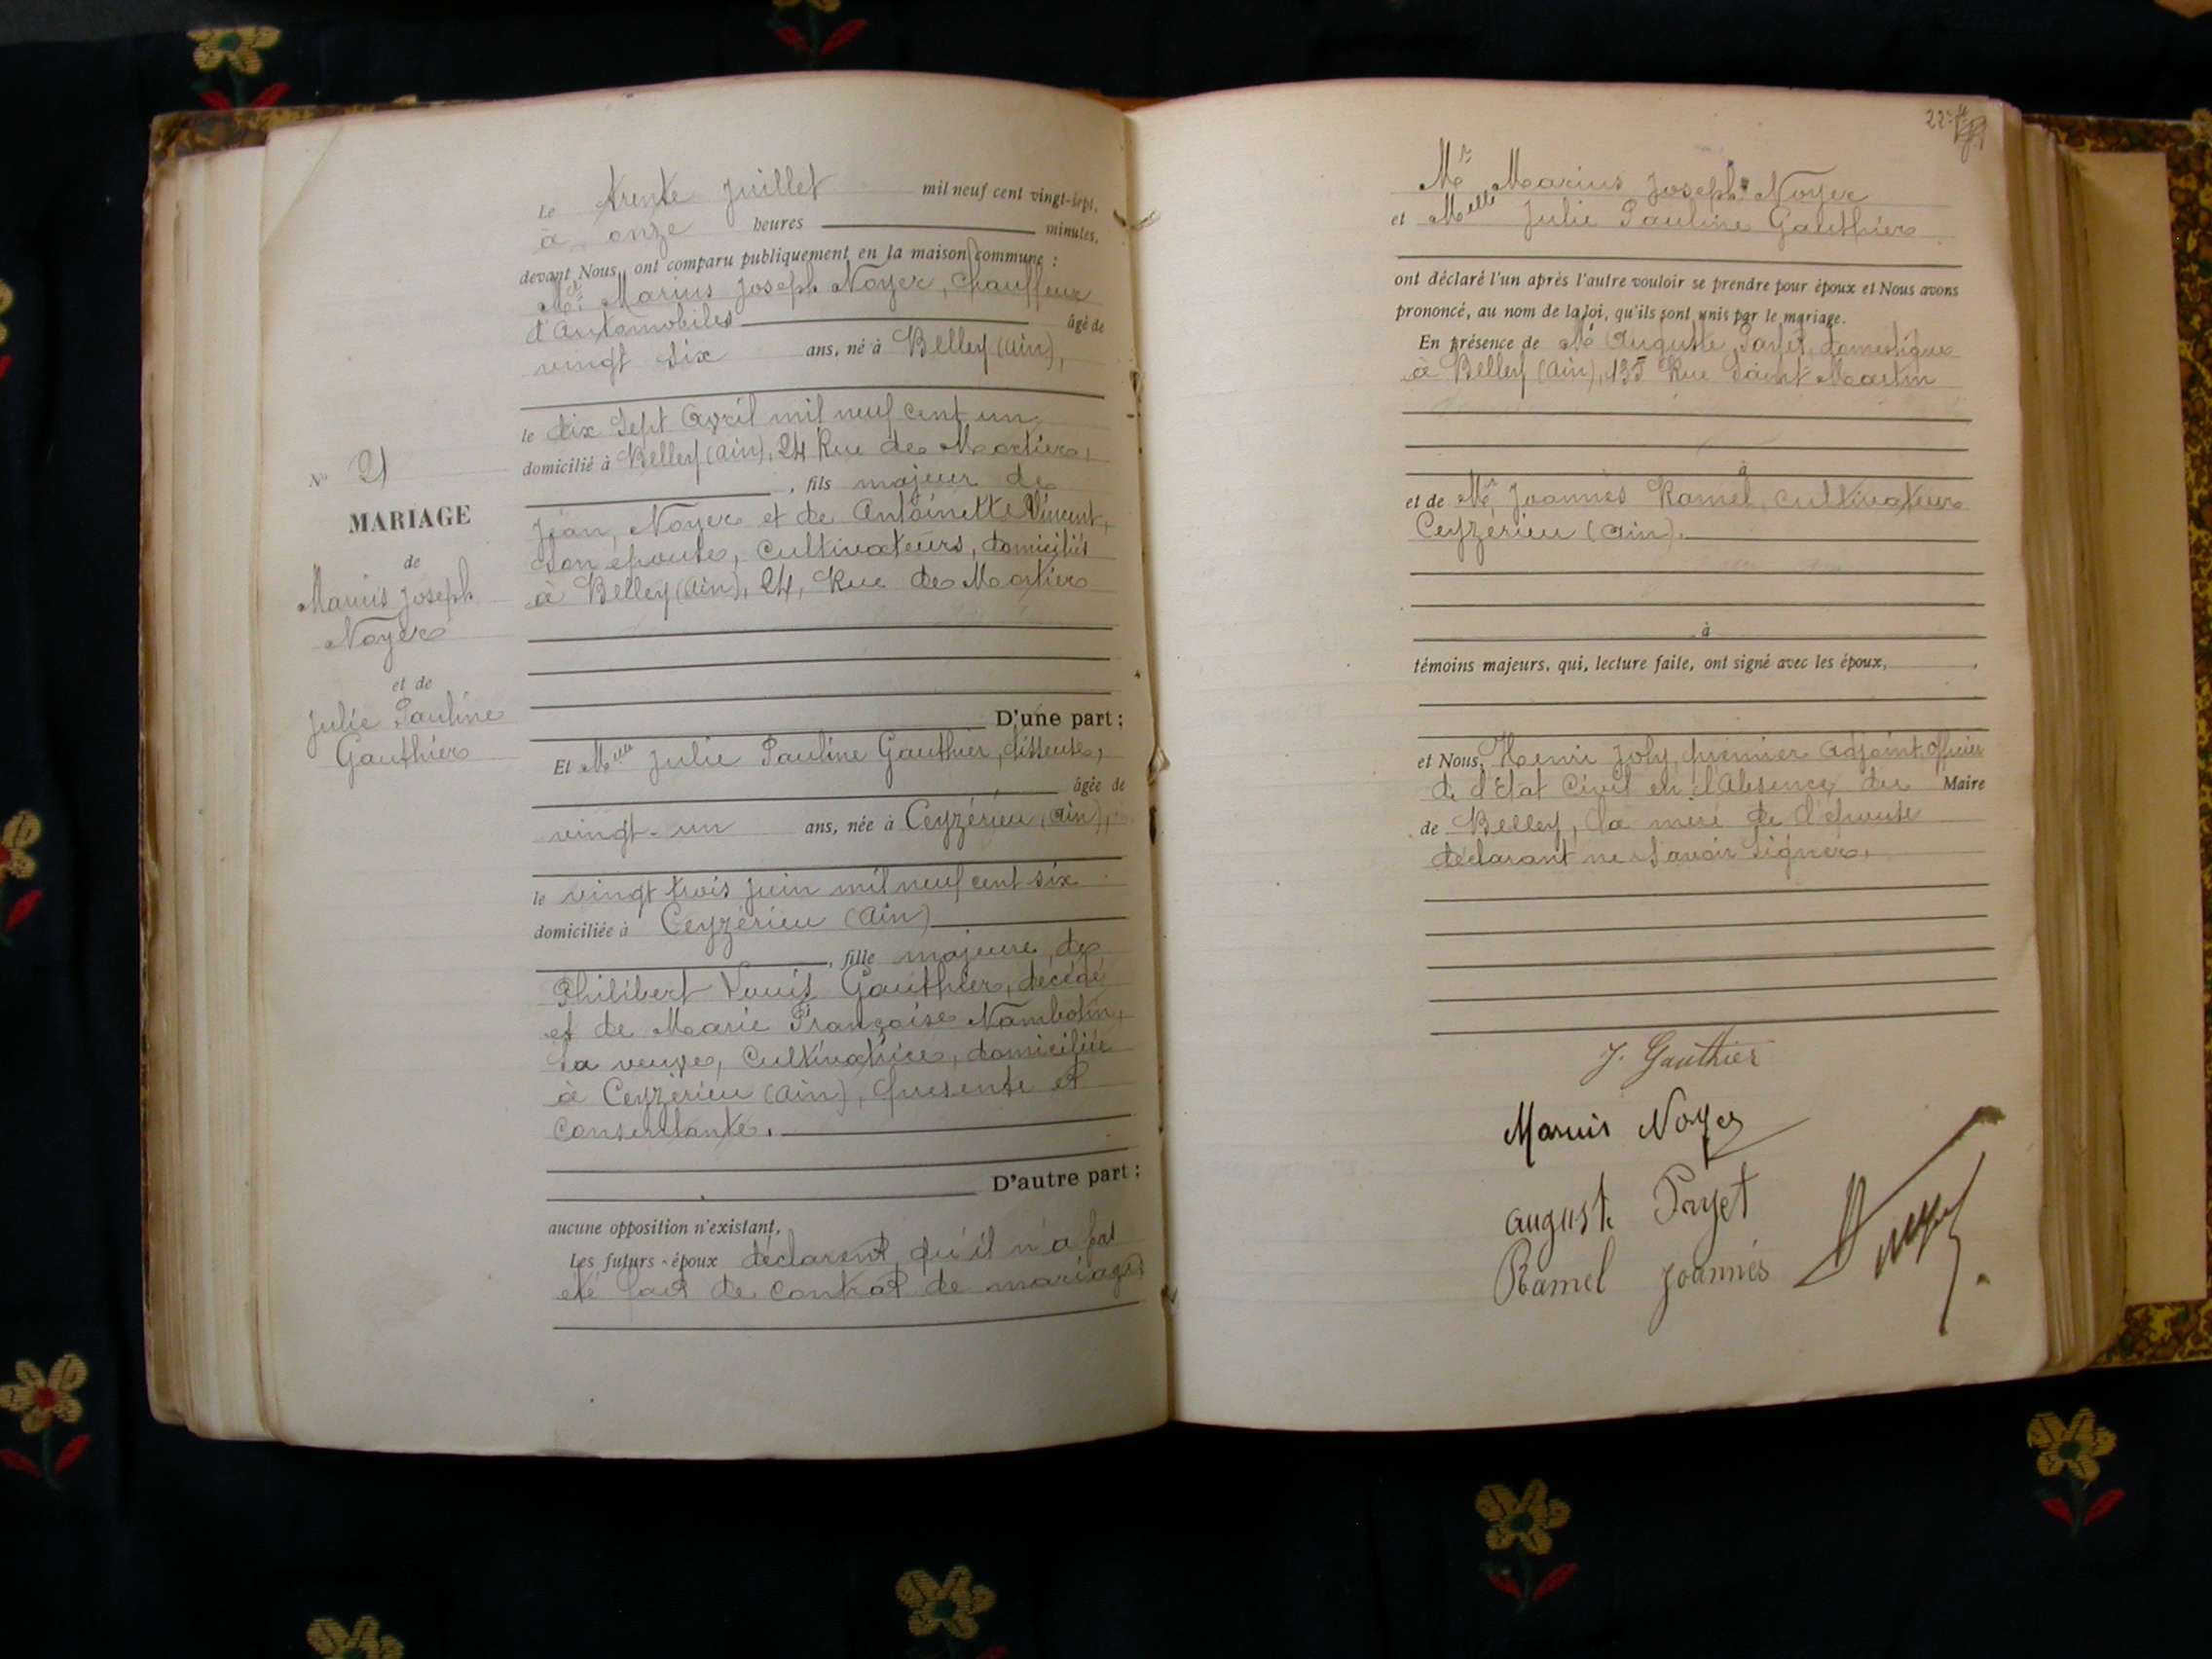 N° 21
MARIAGE
de
Marius Joseph
Noyer
et de
Julie Pauline
Gauthier
Le trente Juillet mil neuf cent vingt-sept,
à onze heures minutes,
devant Nous, ont comparu publiquement en la maison commune :
Mr Marius Joseph Noyer, Chauffeur
d'Automobiles âgé de
vingt six ans, né à Belley (Ain),
le dix Sept Avril mil neuf cent un,
domicilié à Belley (Ain), 24 Rue des Mortiers,
, fils majeur de
Jean Noyer et de Antoinette Vincent,
son épouse, Cultivateurs, domiciliés
à Belley (Ain), 24, Rue des Mortiers
D'une part ;
Et Melle Julie Pauline Gauthier, tisseuse,
âgée de
vingt-un ans, née à Ceyzérieu (Ain),
le vingt trois juin mil neuf cent six
domiciliée à Ceyzérieu (Ain)
, fille majeure de
Philibert Louis Gauthier, décédé
et de Marie Françoise Nambotin,
sa veuve, Cultivatrice, domiciliée
à Ceyzérieu (Ain), présente et
Consentante.
D'autre part ;
aucune opposition n'existant,
Les futurs-époux déclarent qu'il n'a pas
été fait de Contrat de mariage
22
Mr Marius Joseph Noyer
et Melle Julie Pauline Gauthier
ont déclaré l'un après l'autre vouloir se prendre pour époux et Nous avons
prononcé, au nom de la loi, qu'ils sont unis par le mariage.
En présence de Mr Auguste Payet, domestique
à Belley (Ain), 135 Rue Saint Martin
et de Mr Joannès Ramel, Cultivateur à
Ceyzérieu (Ain).
à
témoins majeurs, qui, lecture faite, ont signé avec les époux, ,
et Nous, Henri Joly, premier Adjoint, Officier
de l'Etat Civil en l'Absence du Maire
de Belley, la mère de l'épouse
déclarant ne savoir Signer.
J. Gauthier
Marius Noyer
Auguste Payet
Ramel Joannés